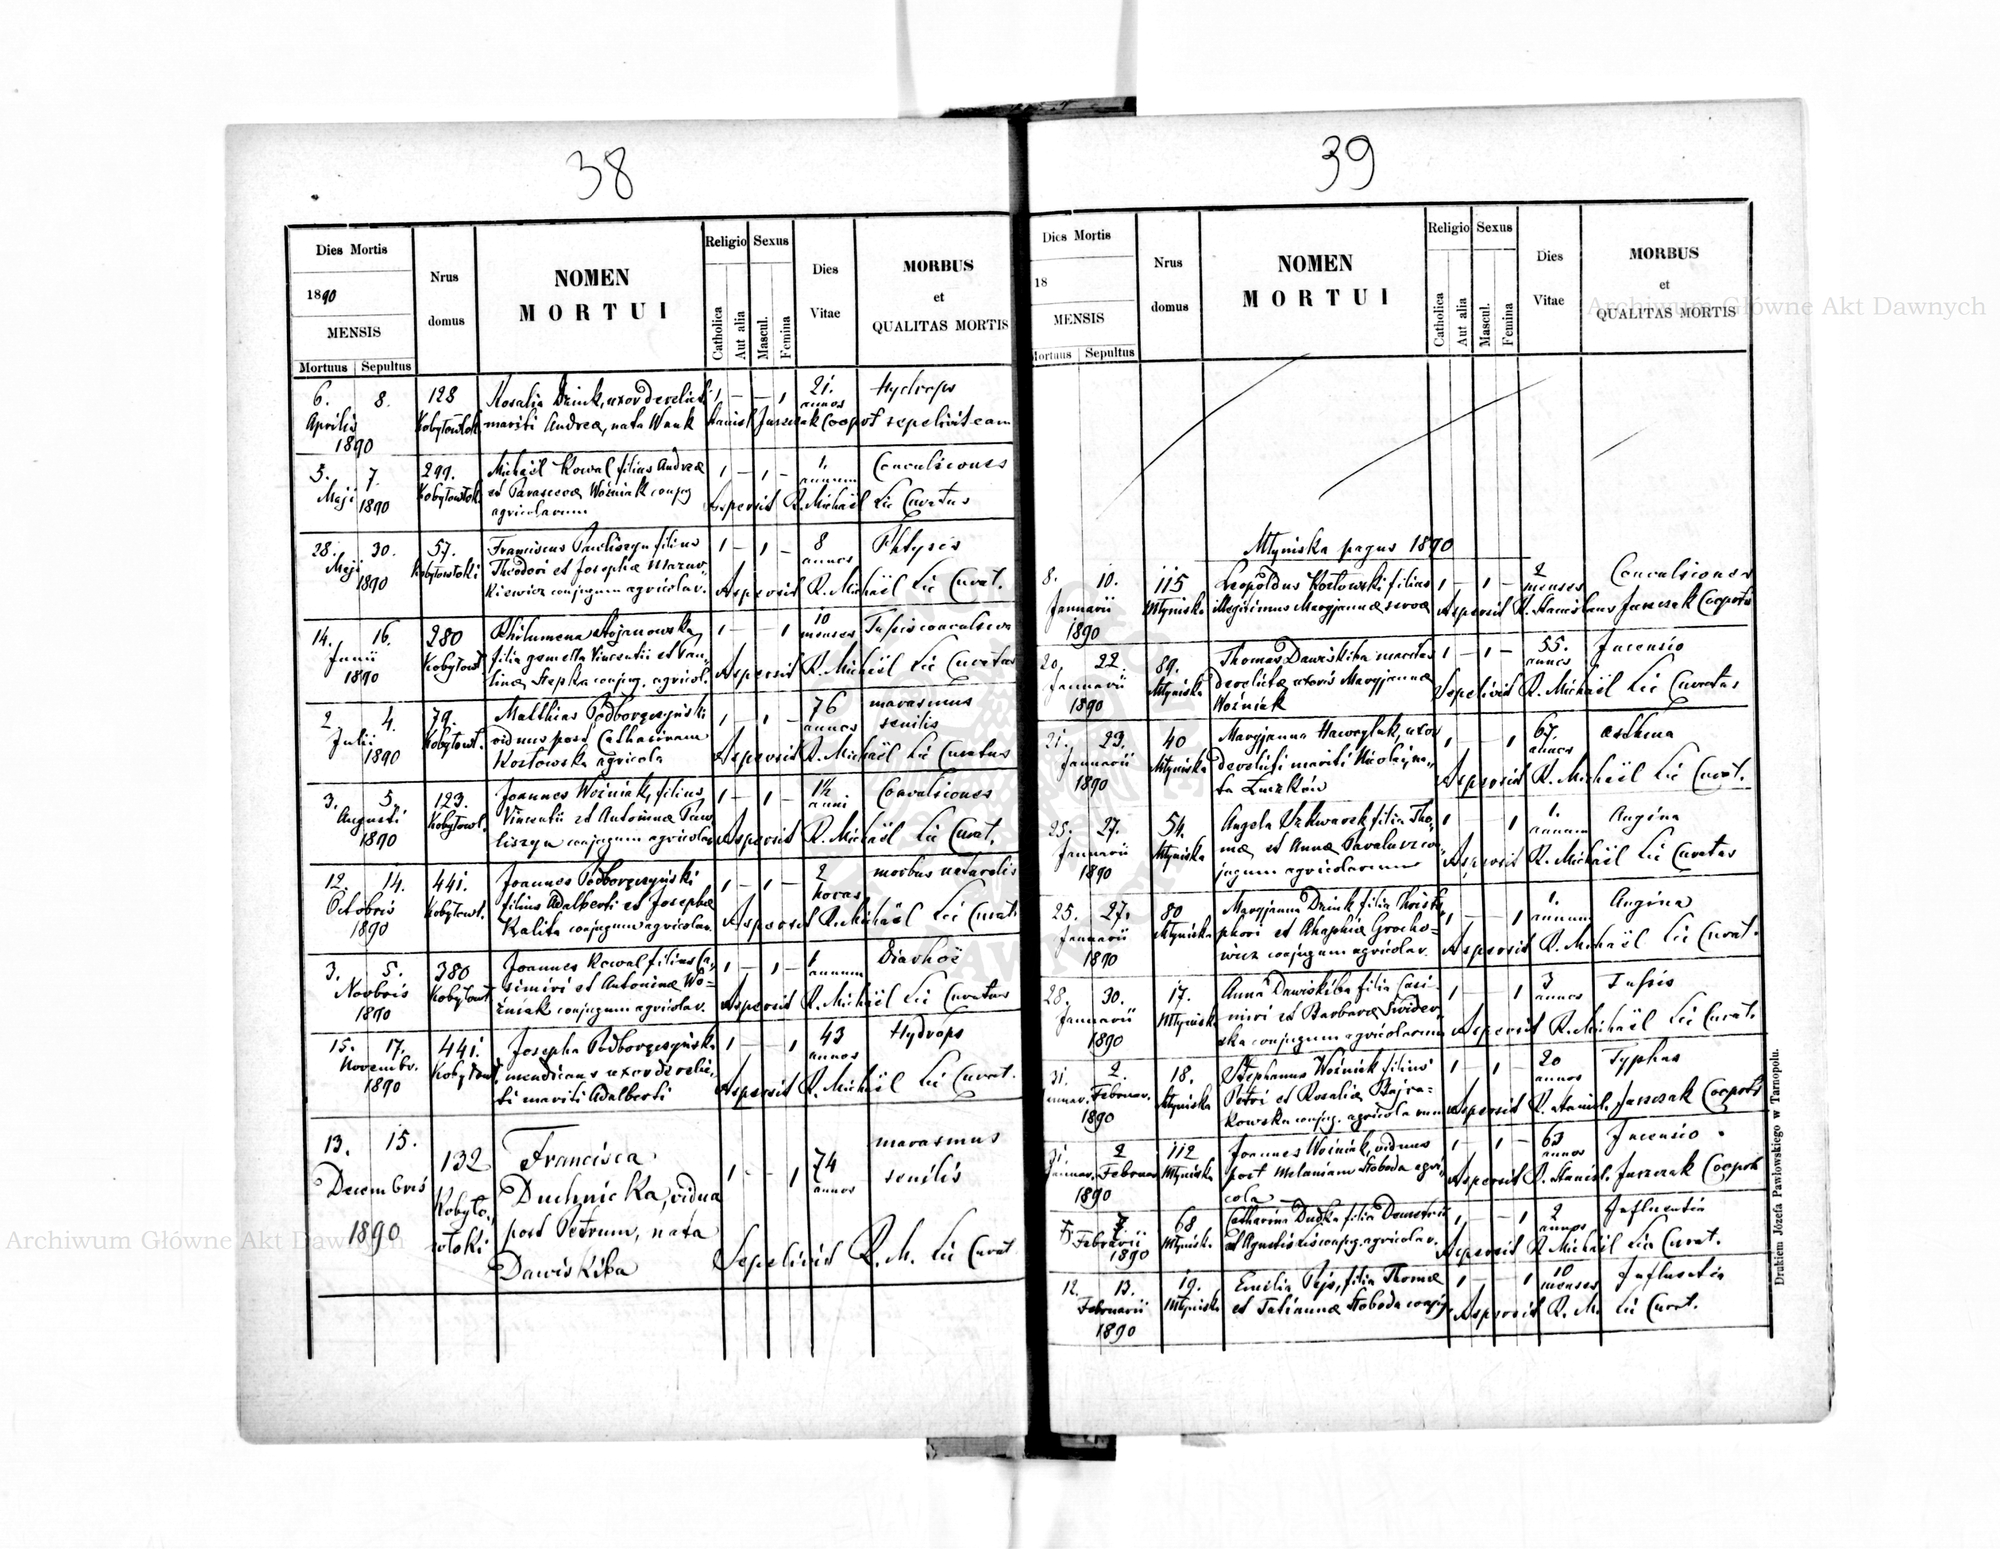 38
Dies Mortis
1890
MENSIS
Mortuus Sepultus
Nrus
domus
NOMEN
MORTUI
Religio
Catholica
Aut alia
Sexus
Mascul.
Femina
Dies
Vitae
MORBUS
et
QUALITAS MORTIS
6. 8. 128 Rosalia Dzink, uxor derelicti 1 — — 1 21. Hydrops
Aprilis annos
1890 mariti Andreæ, nata Wank Cooprt sepelivit eam
5. 7. 299. Michaël Kowal filius Andreæ 1 — 1 — 1. Convulsiones
Maji annum
1890 et Parascevæ Woźniak conjug Aspersit R. Michaël Lic Curatus
agricolarum
28. 30. 57. Franciscus Pauliszyn filius 1 — 1 — 8 Phtysis
Maji annos
1890 Kobyłowłoki Theodori et Josephæ Mazur-
kiewicz conjugum agricolar. Aspersit R. Michaël Lic Curat.
14. 16. 280 Philumena Stojanowska 1 — — 1 10 Tussis convulsiva
Junii menses
1890 Kobyłowł filia gemella Vincentii et Pau-
linæ Stepka conjug. agricol. Aspersit R. Michaël Lic Curatus
2 4. 79. Matthias Podborączyński 1 — 1 — 76 marasmus
Julii annos senilis
1890 Kobyłowł. viduus post Catharinam
Kozłowska agricola Aspersit R. Michaël Lic Curatus
3. 5. 123. Joannes Woźniak, filius 1 — 1 — 1½ Convulsiones
Augusti anni
1890 Kobyłowł. Vincentii et Antoninæ Paw
liszyn conjugum agricolar Aspersit R. Michaël Lic Curat.
12. 14. 441. Joannes Podborączyński 1 — 1 — 2 morbus naturalis
Octobris horas
1890 Kobyłowł. filius Adalberti et Josephæ
Kalita conjugum agricolar. Aspersit R. Michaël Lic Curat.
3. 5. 380 Joannes Kowal filius Ca- 1 — 1 — 1 Diarhöe
Novbris annum
1890 Kobyłowł simiri et Antoninæ Wo-
źniak conjugum agricolar. Aspersit R. Michaël Lic Curatus
15. 17. 441. Josepha Podborączyńska 1 — — 1 43 Hydrops
Novembr. annos
1890 mendicans uxor derelic-
ti mariti Adalberti Aspersit R. Michaël Lic Curat.
13. 15. 132 Francisca 1 — — 1 74 marasmus
Decembris annos senilis
1890 Kobyło- Duchnicka, vidua
włoki post Petrum, nata
Dawiskiba Sepelivit R. M. Lic Curat.
39
Dies Mortis
18
MENSIS
Mortuus Sepultus
Nrus
domus
NOMEN
MORTUI
Religio
Catholica
Aut alia
Sexus
Mascul.
Femina
Dies
Vitae
MORBUS
et
QUALITAS MORTIS
Młyniska pagus 1890
8. 10. 115 Leopoldus Kozłowski filius 1 — 1 — 2 Convulsiones
Januarii menses
1890 Młyniska illegitimus Maryjannæ servæ Aspersit R. Stanislaus Jaszczak Cooprts
20. 22. 89. Thomas Dawiskiba maritus 1 — 1 — 55. Incensio
Januarii annos
1890 Młyniska derelictæ uxoris Maryjannæ
Woźniak Sepelivit R. Michaël Lic Curatus
21. 23. 40 Maryjanna uxor 1 — — 1 67. asthma
Januarii annos
1890 Młyniska derelicti mariti Nicolai, na-
ta Aspersit R. Michaël Lic Curat.
25. 27. 54. Angela filia Tho- 1 — — 1 1. Angina
Januarii annum
1890 Młyniska mæ et Annæ con-
jugum agricolarum Aspersit R. Michaël Lic Curatus
25. 27. 80 Maryjanna Dzink filia Christo- 1 — — 1 1. Angina
Januarii annum
1890 Młyniska phori et Ahaphiæ Grocho-
wicz conjugum agricolar. Aspersit R. Michaël Lic Curat.
28. 30. 17. Anna Dawiskiba filia Casi- 1 — — 1 3 Tussis
Januarii annos
1890 Młyniska miri et Barbaræ Swider-
ska conjugum agricolarum Aspersit R. Michaël Lic Curat.
31. 2. 18. Stephanus Woźniak filius 1 — 1 — 20 Typhus
Januar. Februar. annos
1890 Młyniska Petri et Rosaliæ Bajra-
kowska conjug. agricolarum Aspersit R. Stanisl. Jaszczak Cooprts
31. 2 112 Joannes Woźniak, viduus 1 — 1 — 63 Incensio
Januar. Februar annos
1890 Młyniska post Melaniam Słoboda agri-
cola Aspersit R. Stanisl. Jaszczak Cooprts
5. 7. 68 Catharina Dudka filia Demetrii 1 — — 1 2 Influentia
Februarii annos
1890 Młynisk. et Agnetis Lis conjug. agricolar. Aspersit R. Michaël Lic Curat.
12. 13. 19. Emilia filia Thomæ 1 — — 1 10 Influentia
Februarii menses
1890 Młyniska et Tatiannæ Słoboda conjug Aspersit R. M. Lic Curat.
Drukiem Józefa Pawłowskiego w Tarnopolu.
Archiwum Główne Akt Dawnych
Archiwum Główne Akt Dawnych